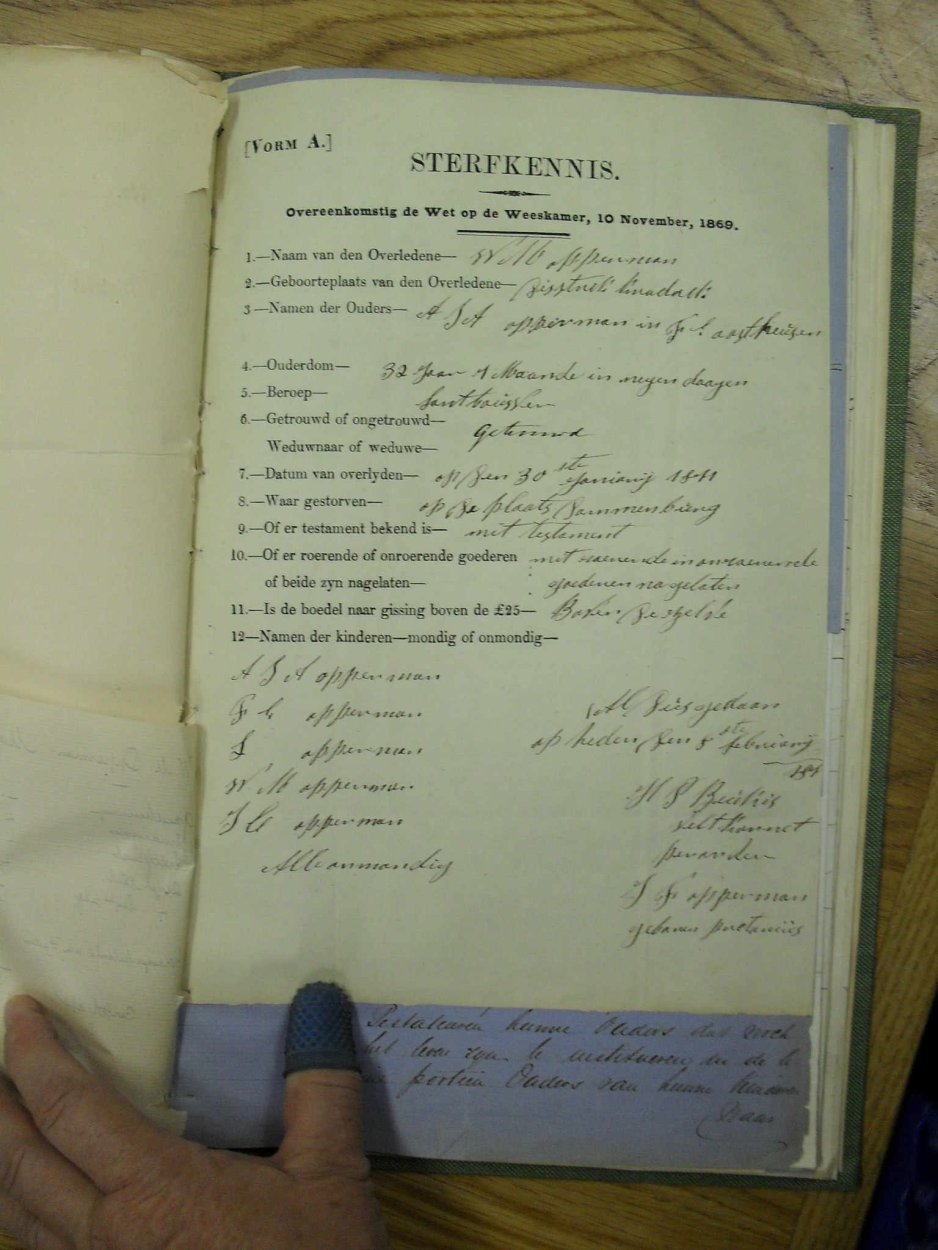 [VORM A.]
STERFKENNIS.
Overeenkomstig de Wet op de Weeskamer, 10 November, 1869.
1.—Naam van den Overledene— W M opperman
2.—Geboorteplaats van den Overledene—
3—Namen der Ouders— A J A opperman in F C oosthuisen
4.—Ouderdom— 32 Jaar 1 Maande in negen daagen
5.—Beroep—
6.—Getrouwd of ongetrouwd— Getrouwd
Weduwnaar of weduwe—
7.—Datum van overlyden— op den 30 ste 1881
8.—Waar gestorven— op de plaats
9.—Of er testament bekend is— met testament
10.—Of er roerende of onroerende goederen met roerende in onroerende
of beide zyn nagelaten— goederen nagelaten
11.—Is de boedel naar gissing boven de £25— Boven deselve
12—Namen der kinderen—mondig of onmondig—
A J A opperman
F C opperman
opperman
W M opperman
J C opperman
Alle onmondig
Al dus gedaan
op heden den 8 ste februarij
H S
veltkornet
J F opperman
geboren
Testateuren hunne Ouders dat zoo
het leven zyn te institueren in de
portien Ouders van hunne kinderen